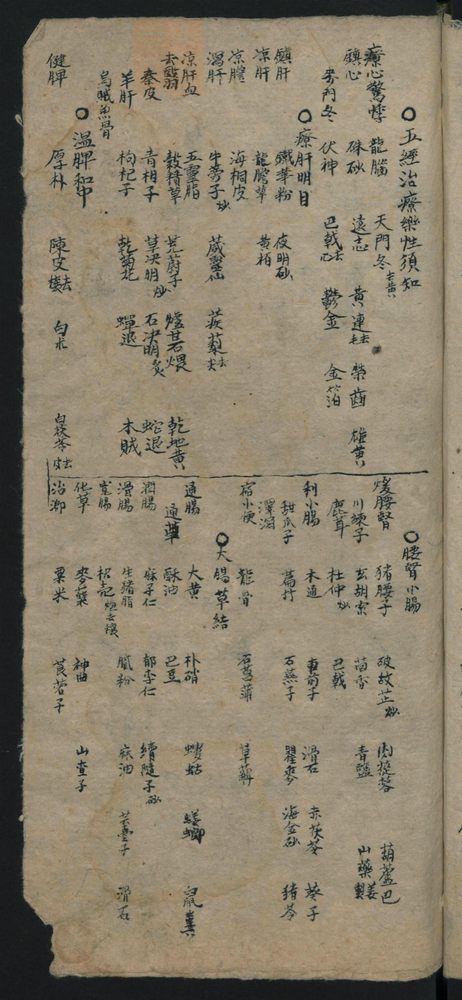 ○五經治療藥性須知
療心驚悸 龍腦 天門冬去黃
鎮心 硃砂 遠志 黃連去毛 柴茴 雄黃
麥門冬 伏神 巴戟去心 鬱金 金箔
○療肝明目
鎮肝 鐵華粉 夜明砂
涼肝 龍膽草 黃柏
涼膽 海桐皮
瀉肝 牛蒡子炒 葳靈仙 蒺莉去尖
涼肝血 五靈脂 茺蔚子 爐甘石煨 乾地黃
去翳 穀精草 草決明炒 石決明炙 蛇退
秦皮 青相子
羊肝 枸杞子 乾菊花 蟬退 木賊
烏賊魚骨
○溫脾和中
健脾 厚朴 陳皮去穰 白朮 白茯苓去皮
○腰腎小腸
煖腰腎 猪腰子 破故芷炒 肉蓯蓉 葫蘆巴
川楝子 玄胡索 茴香 青鹽 山藥姜製
鹿茸 杜仲炒 巴戟
利小腸 木通 車前子 滑石 赤茯苓 葵子
甜瓜子 萹竹 石燕子 瞿麥 海金砂 猪苓
澤瀉
宿小便 龍骨 石菖蒲 草薢
○大腸草結
通腸 大黃 朴硝 螻蛄 蜣螂 鼠糞
通草
潤腸 酥油 巴豆 續隨子炒
麻子仁 郁李仁
滑腸 生猪脂 膩粉 麻油 芸臺子 滑石
寬腸 枳壳
化草 麥蘗 神曲 山查子
治泖 粟米 莨菪子